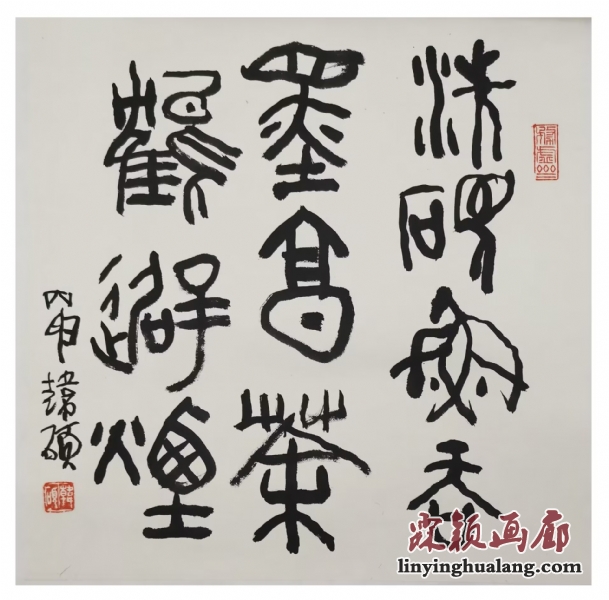 洗硯魚吞
墨烹茶
鶴避煙
丙申 韓碩
颖画廊
linyinghualang.com